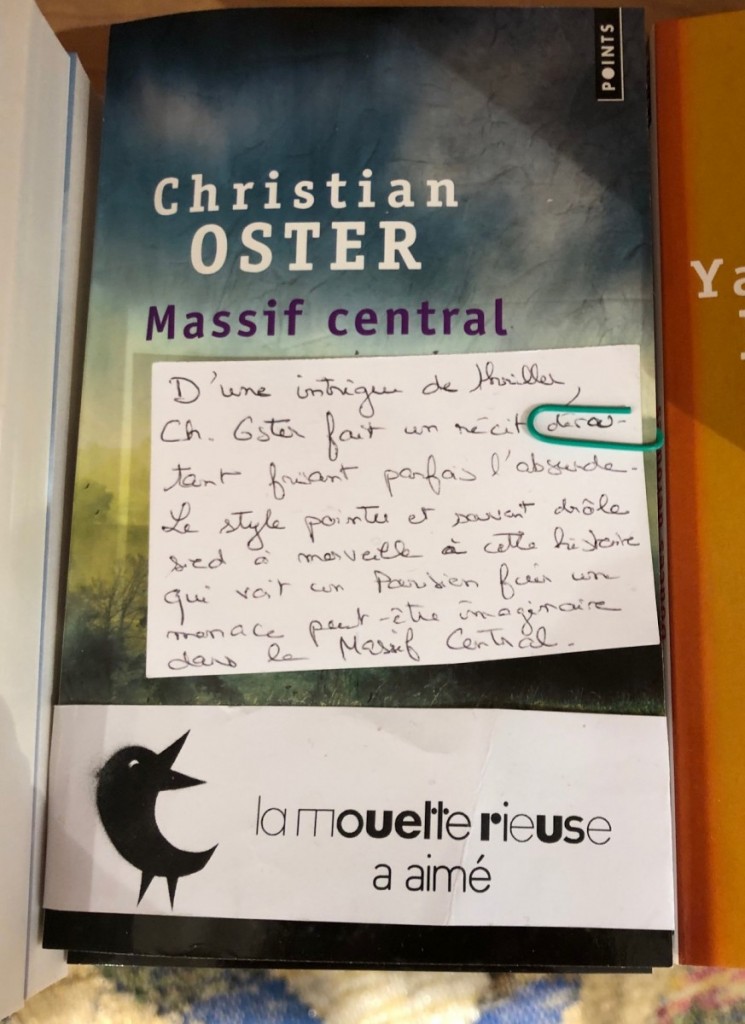 POINTS
Christian
OSTER
Massif central
D'une intrigue de thriller,
Ch. Oster fait un récit dérou-
tant frisant parfois l'absurde.
Le style pointu et souvent drôle
sied à merveille à cette histoire
qui voit un Parisien fuir une
menace peut-être imaginaire
dans le Massif Central.
la mouette rieuse
a aimé
Ya